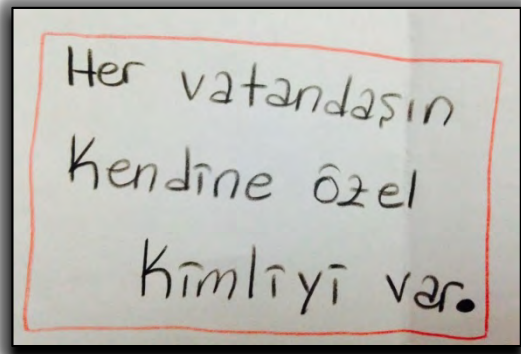 Her vatandaşın
Kendīne ōzel
Kīmlīyī var.